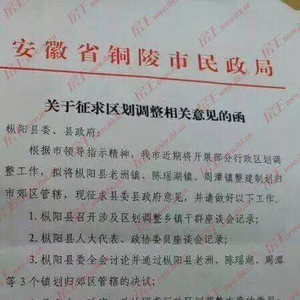 安徽省铜陵市民政局
关于征求区划调整相关意见的函
枞阳县委、县政府：
根据市领导指示精神，我市近期将开展部分行政区划调
整工作，拟将枞阳县老洲镇、陈瑶湖镇、周潭镇整建制划归
市郊区管辖，现征求县委县政府意见，并请做好以下工作。
1．枞阳县召开涉及区划调整乡镇干群座谈会记录；
2．枞阳县人大代表、政协委员座谈会记录；
3．枞阳县委全会讨论并通过枞阳县老洲、陈瑶湖、周潭
等 3 个镇划归郊区管辖的决议；